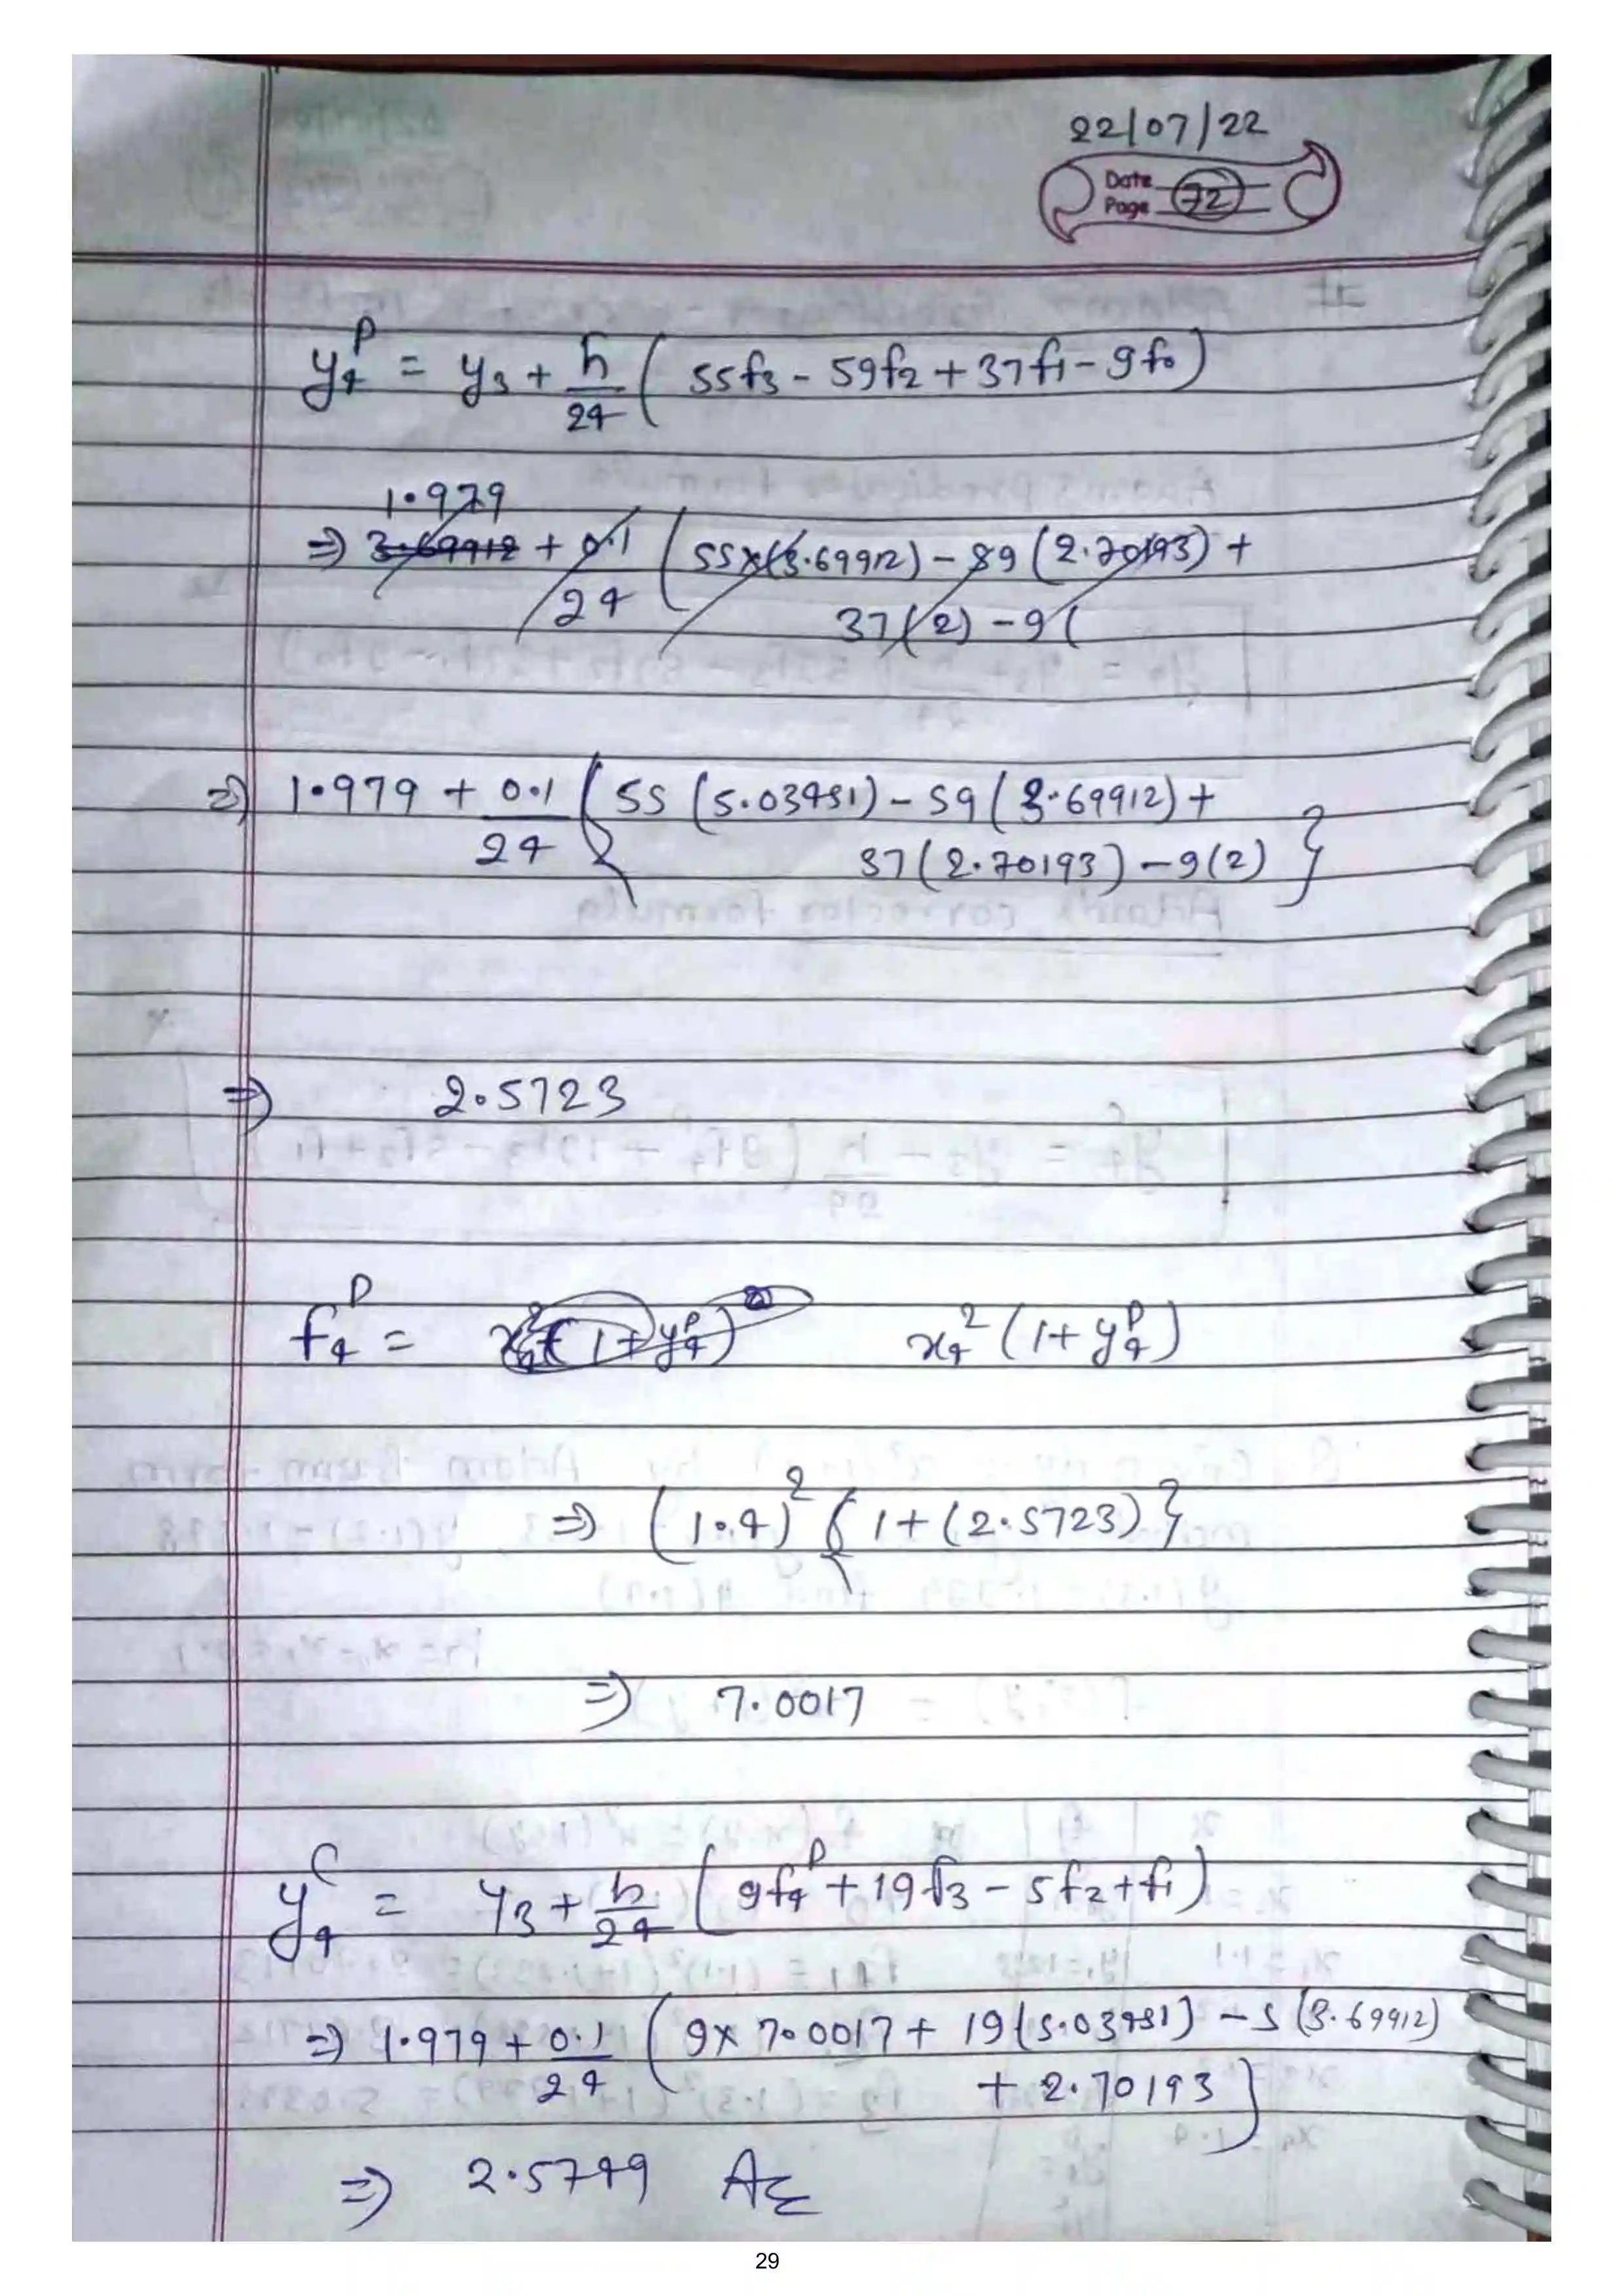 22/07/22
Date
Page 72
y₄ᴾ = y₃ + h/24 ( 55f₃ - 59f₂ + 37f₁ - 9f₀ )
1.979
⇒ 3.69912 + 0.1/24 ( 55×(3.69912) - 59 (2.70193) +
37(2) - 9(
⇒ 1.979 + 0.1/24 { 55 (5.03451) - 59 (3.69912) +
37(2.70193) - 9(2) }
⇒ 2.5723
f₄ᴾ = x₄²(1+y₄ᴾ) x₄² (1+ y₄ᴾ)
⇒ (1.4)² { 1+(2.5723) }
⇒ 7.0017
y₄ᶜ = y₃ + h/24 ( 9f₄ᴾ + 19f₃ - 5f₂ + f₁ )
⇒ 1.979 + 0.1/24 ( 9× 7.0017 + 19(5.03451) - 5 (3.69912)
+ 2.70193 )
⇒ 2.5749 Ans
29